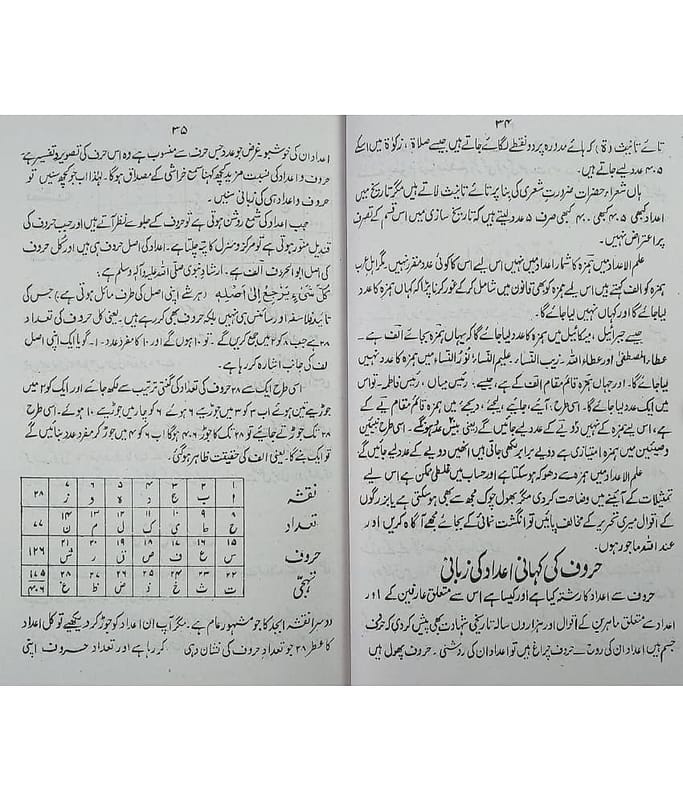 ۳۴
تائے تانیث (ۃ) کہ ہائے مدورہ پر دو نقطے لگائے جاتے ہیں جیسے صلاۃ، زکوٰۃ میں اسکے
۴۰۵ عدد لیے جاتے ہیں۔
ہاں شعراء حضرات ضرورتِ شعری کی بنا پر تائے تانیث لاتے ہیں مگر تاریخ میں
اعداد کبھی ۴۰۵ کبھی ۴۰۰ کبھی صرف ۵ عدد لیتے ہیں کہ تاریخ سازی میں اس قسم کے تصرف
پر اعتراض نہیں۔
علم الاعداد میں ہمزہ کا شمار اعداد میں نہیں اس لیے اس کا کوئی عدد مقرر نہیں۔ مگر اہل عرب
ہمزہ کو الف کہتے ہیں اس لیے ہمزہ کو بھی قانون میں شامل کر کے غور کرنا پڑا کہ کہاں ہمزہ کا عدد
لیا جائے گا اور کہاں نہیں لیا جائے گا۔
جیسے جبرائیل، میکائیل میں ہمزہ کا عدد لیا جائے گا کہ یہاں ہمزہ بجائے الف ہے۔
عطاء المصطفیٰ اور عطاء اللہ۔ زیب النساء۔ علیم النساء۔ نور النساء میں ہمزہ کا عدد نہیں
لیا جائے گا۔ اور جہاں ہمزہ قائم مقام الف کے ہے، جیسے: رئیس میاں، رئیس فاطمہ۔ تو اس
میں ایک عدد لیا جائے گا۔ اسی طرح، آئیے، جائیے، لیجئے، دیجئے میں ہمزہ قائم مقام یے کے
ہے، اس لئے ہمزہ کے نہیں دو یے کے عدد لیے جائیں گے یعنی بیس عدد ہونگے۔ اسی طرح تبیین
و تعیین میں ہمزہ امتیازی ہے دو یے برابر لکھی جاتی ہیں انھیں دو یے کے عدد لیے جائیں گے
علم الاعداد میں ہمزہ سے دھوکہ ہو سکتا ہے اور حساب میں غلطی ممکن ہے اس لیے
تمثیلات کے آئینے میں وضاحت کر دی مگر بھول چوک مجھ سے بھی ہو سکتی ہے یا بزرگوں
کے اقوال میری تحریر کے مخالف پائیں تو انگشت نمائی کے بجائے مجھے آگاہ کریں اور
عند اللہ ماجور ہوں۔
حروف کی کہانی اعداد کی زبانی
حروف سے اعداد کا رشتہ کیا ہے اور کیسا ہے اس سے متعلق عارفین کے اور
اعداد سے متعلق ماہرین کے اقوال اور ہزاروں سالہ تاریخی شہادت بھی پیش کر دی کہ حروف
جسم ہیں اعداد ان کی روح۔ حروف چراغ ہیں تو اعداد ان کی روشنی۔ حروف پھول ہیں
۳۵
اعداد ان کی خوشبو۔ غرض جو عدد جس حرف سے منسوب ہے وہ اس حرف کی تصویر و تفسیر ہے
حروف و اعداد کی نسبت مزید کچھ کہنا سمع خراشی کے مصداق ہوگا۔ لہٰذا اب جو کچھ سنیں تو
حروف و اعداد ہی کی زبانی سنیں۔
جب اعداد کی شمع روشن ہوتی ہے تو حروف کے جلوے نظر آتے ہیں اور جب حروف کی
قندیل منور ہوتی ہے تو مرکز و منزل کا پتہ چلتا ہے۔ اعداد کی اصل حروف ہی ہیں اور کل حروف
کی اصل ابو الحروف الف ہے۔ ارشادِ نبوی صلی اللہ علیہ وآلہ وسلم ہے:
کُلُّ شَیْءٍ یَرْجِعُ اِلیٰ اَصْلِہٖ (ہر شے اپنی اصل کی طرف مائل ہوتی ہے) جس کی
تائید فلاسفہ اور سائنس ہی نہیں بلکہ حروف بھی کر رہے ہیں۔ یعنی کل حروف کی تعداد
۲۸ ہے جب ۸ کو ۲ میں جمع کریں گے۔ تو ۱۰ ہوں گے اور ۱۰ کا مفرد عدد ۱۔ گویا ایک اپنی اصل
الف کی جانب اشارہ کر رہا ہے۔
اسی طرح ایک سے ۲۸ حروف کی تعداد کی گنتی ترتیب سے لکھ جائے اور ایک کو ۲ میں
جوڑیے تین ہوئے اب ۳ کو ۳ میں جوڑیے ۶ ہوئے ۶ کو چار میں جوڑیے ۱۰ ہوئے۔ اسی طرح
۲۸ تک جوڑتے جائیے تو ۲۸ تک کا جوڑ ۴۰۶ ہوگا اب ۶ کو ۴ میں جوڑ کر مفرد عدد بنائیں گے
تو ایک بنے گا۔ یعنی الف کی حقیقت ظاہر ہو گئی۔
نقشہ
تعداد
حروف
تہجی
۱ ۲ ۳ ۴ ۵ ۶ ۷ ۲۸
ا ب ج د ہ و ز
۸ ۹ ۱۰ ۱۱ ۱۲ ۱۳ ۱۴ ۷۷
ح ط ی ک ل م ن
۱۵ ۱۶ ۱۷ ۱۸ ۱۹ ۲۰ ۲۱ ۱۲۶
س ع ف ص ق ر ش
۲۲ ۲۳ ۲۴ ۲۵ ۲۶ ۲۷ ۲۸ ۱۷۵
ت ث خ ذ ض ظ غ ۴۰۶
دوسرا نقشہ ابجد کا جو مشہور عام ہے۔ مگر آپ ان اعداد کو جوڑ کر دیکھیے تو کل اعداد
کا عطر ۲۸ جو تعداد حروف کی نشان دہی کر رہا ہے اور تعداد حروف اپنی